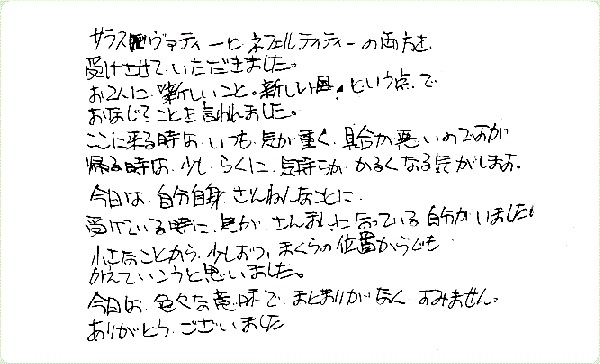 サラスヴァティーとネフェルティティーの両方を
受けさせていただきました。
お2人に 新しいこと。新しい風。という点で
おなじことを言われました。
ここに来る時は いつも 気が重く 具合が悪いのですが
帰る時は 少し らくに 気持ちが かるくなる気がします。
今日は 自分自身 ざんねんなことに
受けている時に 気が さんまんになっている自分がいました。
小さなことから 少しずつ まくらの位置からでも
かえていこうと思いました。
今日は 色々な意味で まとまりがなく すみません。
ありがとう ございました